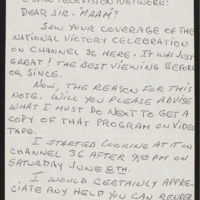 C-SPAN TELEVISION NETWORK:
DEAR SIR - MAAM?
SAW YOUR COVERAGE OF THE
NATIONAL VICTORY CELEBRATION
ON CHANNEL 36 HERE. IT WAS JUST
GREAT! THE BEST VIEWING BEFORE
OR SINCE.
NOW, THE REASON FOR THIS
NOTE. WILL YOU PLEASE ADVISE
WHAT I MUST DO NEXT TO GET A
COPY OF THAT PROGRAM ON VIDEO
TAPE.
I STARTED LOOKING AT IT ON
CHANNEL 36 AFTER PM ON
SATURDAY JUNE 8TH.
I WOULD CERTAINLY APPRE-
CIATE ANY HELP YOU CAN RENDER